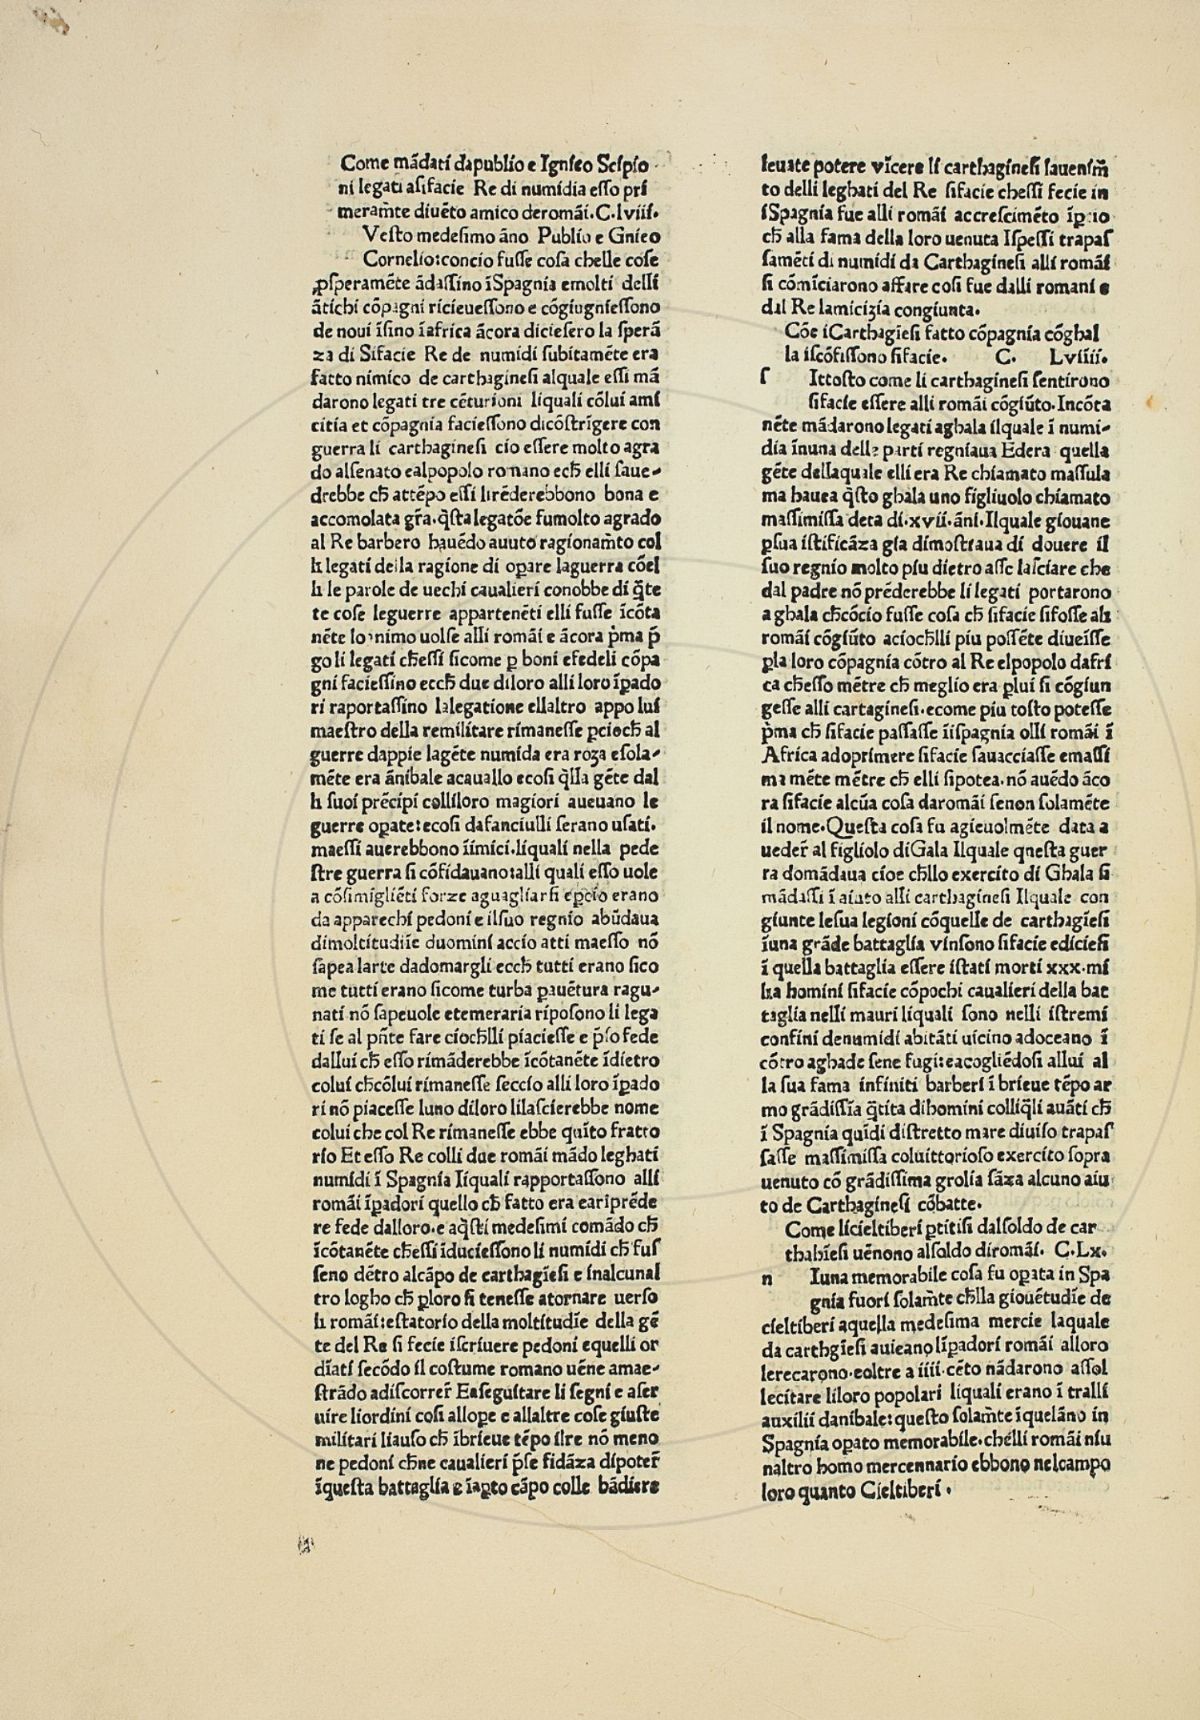 Come mādati dapublio e Ignieo Scipio
ni legati asifacie Re di numidia esso pri
meram̄te divēto amico deromāi.C.lviii.
Vesto medesimo āno Publio e Gnieo
Cornelio:concio fusse cosa chelle cose
ꝓsperamēte ādassino īSpagnia emolti delli
ātichi cōpagni ricievessono e cōgiugniessono
de novi īsino īafrica ācora diciesero la sperā
za di Sifacie Re de numidi subitamēte era
fatto nimico de carthaginesi alquale essi mā
darono legati tre cēturioni liquali cōlui ami
citia et cōpagnia faciessono dicōstrīgere con
guerra li carthaginesi cio essere molto agra
do alsenato ealpopolo romano ecħ elli save-
drebbe cħ attēpo essi lirēderebbono bona e
accomolata gr̄a.q̄sta legatōe fumolto agrado
al Re barbero havēdo auuto ragionam̄to col
li legati della ragione di oꝑare laguerra cōel
li le parole de uechi caualieri conobbe di q̄te
te cose leguerre appartenēti elli fusse īcōta
nēte lo nimo uolse alli romāi e ācora p̄ma p̄
go li legati cħessi sicome ꝑ boni efedeli cōpa
gni faciessino eccħ due diloro alli loro īꝑado
ri raportassino lalegatione ellaltro appo lui
maestro della remilitare rimanesse ꝑciocħ al
guerre dappie lagēte numida era roza esola-
mēte era ānibale acauallo ecosi q̄lla gēte dal
li suoi prēcipi colliloro magiori aueuano le
guerre oꝑate:ecosi dafanciulli serano usati.
maessi auerebbono īimici.liquali nella pede
stre guerra si cōfidauano:alli quali esso uole
a cōsimigliēti forze aguagliarsi eꝑcio erano
da apparechi pedoni e ilsuo regnio abūdaua
dimoltitudiīe duomini accio atti maesso nō
sapea larte dadomargli eccħ tutti erano sico
me tutti erano sicome turba ꝑauētura ragu-
nati nō sapeuole etemeraria riposono li lega
ti se al pn̄te fare ciocħlli piaciesse e p̄so fede
dallui cħ esso rimāderebbe īcōtanēte īdietro
colui cħcōlui rimanesse seccio alli loro īꝑado
ri nō piacesse luno diloro lilascierebbe nome
colui che col Re rimanesse ebbe quīto fratto
rio Et esso Re colli due romāi mādo leghati
numidi ī Spagnia liquali rapportassono alli
romāi īꝑadori quello cħ fatto era eariprēde
re fede dalloro.e aq̄sti medesimi comādo cħ
īcōtanēte cħessi īduciessono li numidi cħ fus
seno dētro alcāpo de carthagīesi e inalcunal
tro logho cħ ꝑloro si tenesse atornare uerso
li romāi:estatorio della moltitudīe della gē
te del Re si fecie īscriuere pedoni equelli or
dīati secōdo il costume romano uēne amae-
strādo adiscorrer̄ Enseguitare li segni e aser
uire liordini cosi alloꝑe e allaltre cose giuste
militari liauso cħ ībrieue tēpo ilre nō meno
ne pedoni cħne caualieri p̄se fidāza dipoter̄
īquesta battaglia e īaꝑto cāpo colle bādiere
leuate potere vīcere li carthaginesi lauenim̄
to delli leghati del Re sifacie chessi fecie in
iSpagnia fue alli romāi accrescimēto īꝑio
cħ alla fama della loro uenuta Ispessi trapas
samēti di numidi da Carthaginesi alli romāi
si cōmīciarono affare cosi fue dalli romani e
dal Re lamicizia congiunta.
Cōe iCarthagīesi fatto cōpagnia cōghal
la iscōfissono sifacie. C. Lviiii.
s Ittosto come li carthaginesi sentirono
sifacie essere alli romāi cōgiūto.Incōta
nēte mādarono legati aghala ilquale ī numi-
dia īnuna delle parti regniaua Edera quella
gēte dellaquale elli era Re chiamato massula
ma hauea q̄sto ghala uno figliuolo chiamato
massimissa deta di.xvii.āni.Ilquale giouane
ꝑsua istificāza gia dimostraua di douere il
suo regnio molto piu dietro asse lasciare che
dal padre nō prēderebbe li legati portarono
aghala cħcōcio fusse cosa cħ sifacie sifosse ali
romāi cōgiūto aciocħlli piu possēte diueīsse
ꝑla loro cōpagnia cōtro al Re elpopolo dafri
ca cħesso mētre cħ meglio era ꝑlui si cōgiun
gesse alli cartaginesi.ecome piu tosto potesse
p̄ma cħ sifacie passasse īispagnia olli romāi ī
Africa adoprimere sifacie sauacciasse emassi
ma mēte mētre cħ elli sipotea.nō auēdo āco
ra sifacie alcūa cosa daromāi senon solamēte
il nome.Questa cosa fu agieuolmēte data a
ueder̄ al figliolo diGala Ilquale questa guer
ra domādaua cioe cħllo exercito di Ghala si
mādassi ī aiuto alli carthaginesi Ilquale con
giunte lesua legioni cōquelle de carthagīesi
īuna grāde battaglia vinsono sifacie ediciesi
ī quella battaglia essere istati morti xxx.mi
lia homini sifacie cōpochi caualieri della bat
taglia nelli mauri liquali sono nelli istremi
confini denumidi abitāti uicino adoceano ī
cōtro aghade sene fugi:eacogliēdosi allui al
la sua fama infiniti barberi ī brieue tēpo ar
mo grādissīa q̄tita dihomini colliq̄li auāti cħ
ī Spagnia quīdi distretto mare diuiso trapas
sasse massimissa coluittorioso exercito sopra
uenuto cō grādissima grolia sāza alcuno aiu
to de Carthaginesi cōbatte.
Come licieltiberi ꝑtitisi dalsoldo de car
thahīesi uēnono alsoldo diromāi. C.Lx.
n Iuna memorabile cosa fu oꝑata in Spa
gnia fuori solam̄te cħlla giouētudīe de
cieltiberi aquella medesima mercie laquale
da carthgīesi auieano līꝑadori romāi alloro
lerecarono.eoltre a iiii.cēto nādarono assol
lecitare liloro popolari liquali erano ī tralli
auxilii danibale:questo solam̄te īquelāno in
Spagnia oꝑato memorabile.chelli romāi niu
naltro homo mercennario ebbono nelcampo
loro quanto Cieltiberi.